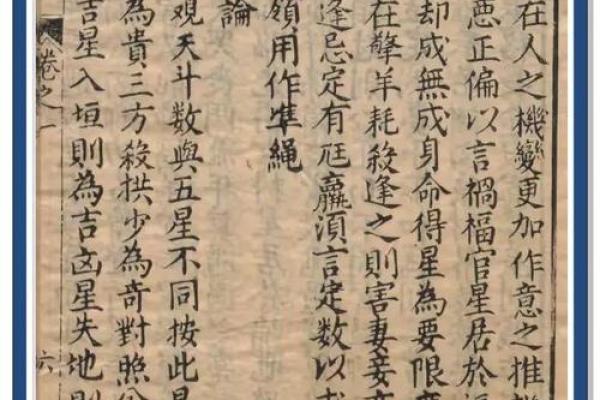 在人之機變更加作意之推
惡正偏以言禍福官星居於
却成無成身命得星為要限
在擎羊耗殺逢之則害妻妾
逢忌定有尫羸須言定數以
領用作準繩
論
觀天斗數與五星不同按此星
為貴三方殺拱少為奇對照
吉星入垣則為吉凶星失地則
卷之一
六